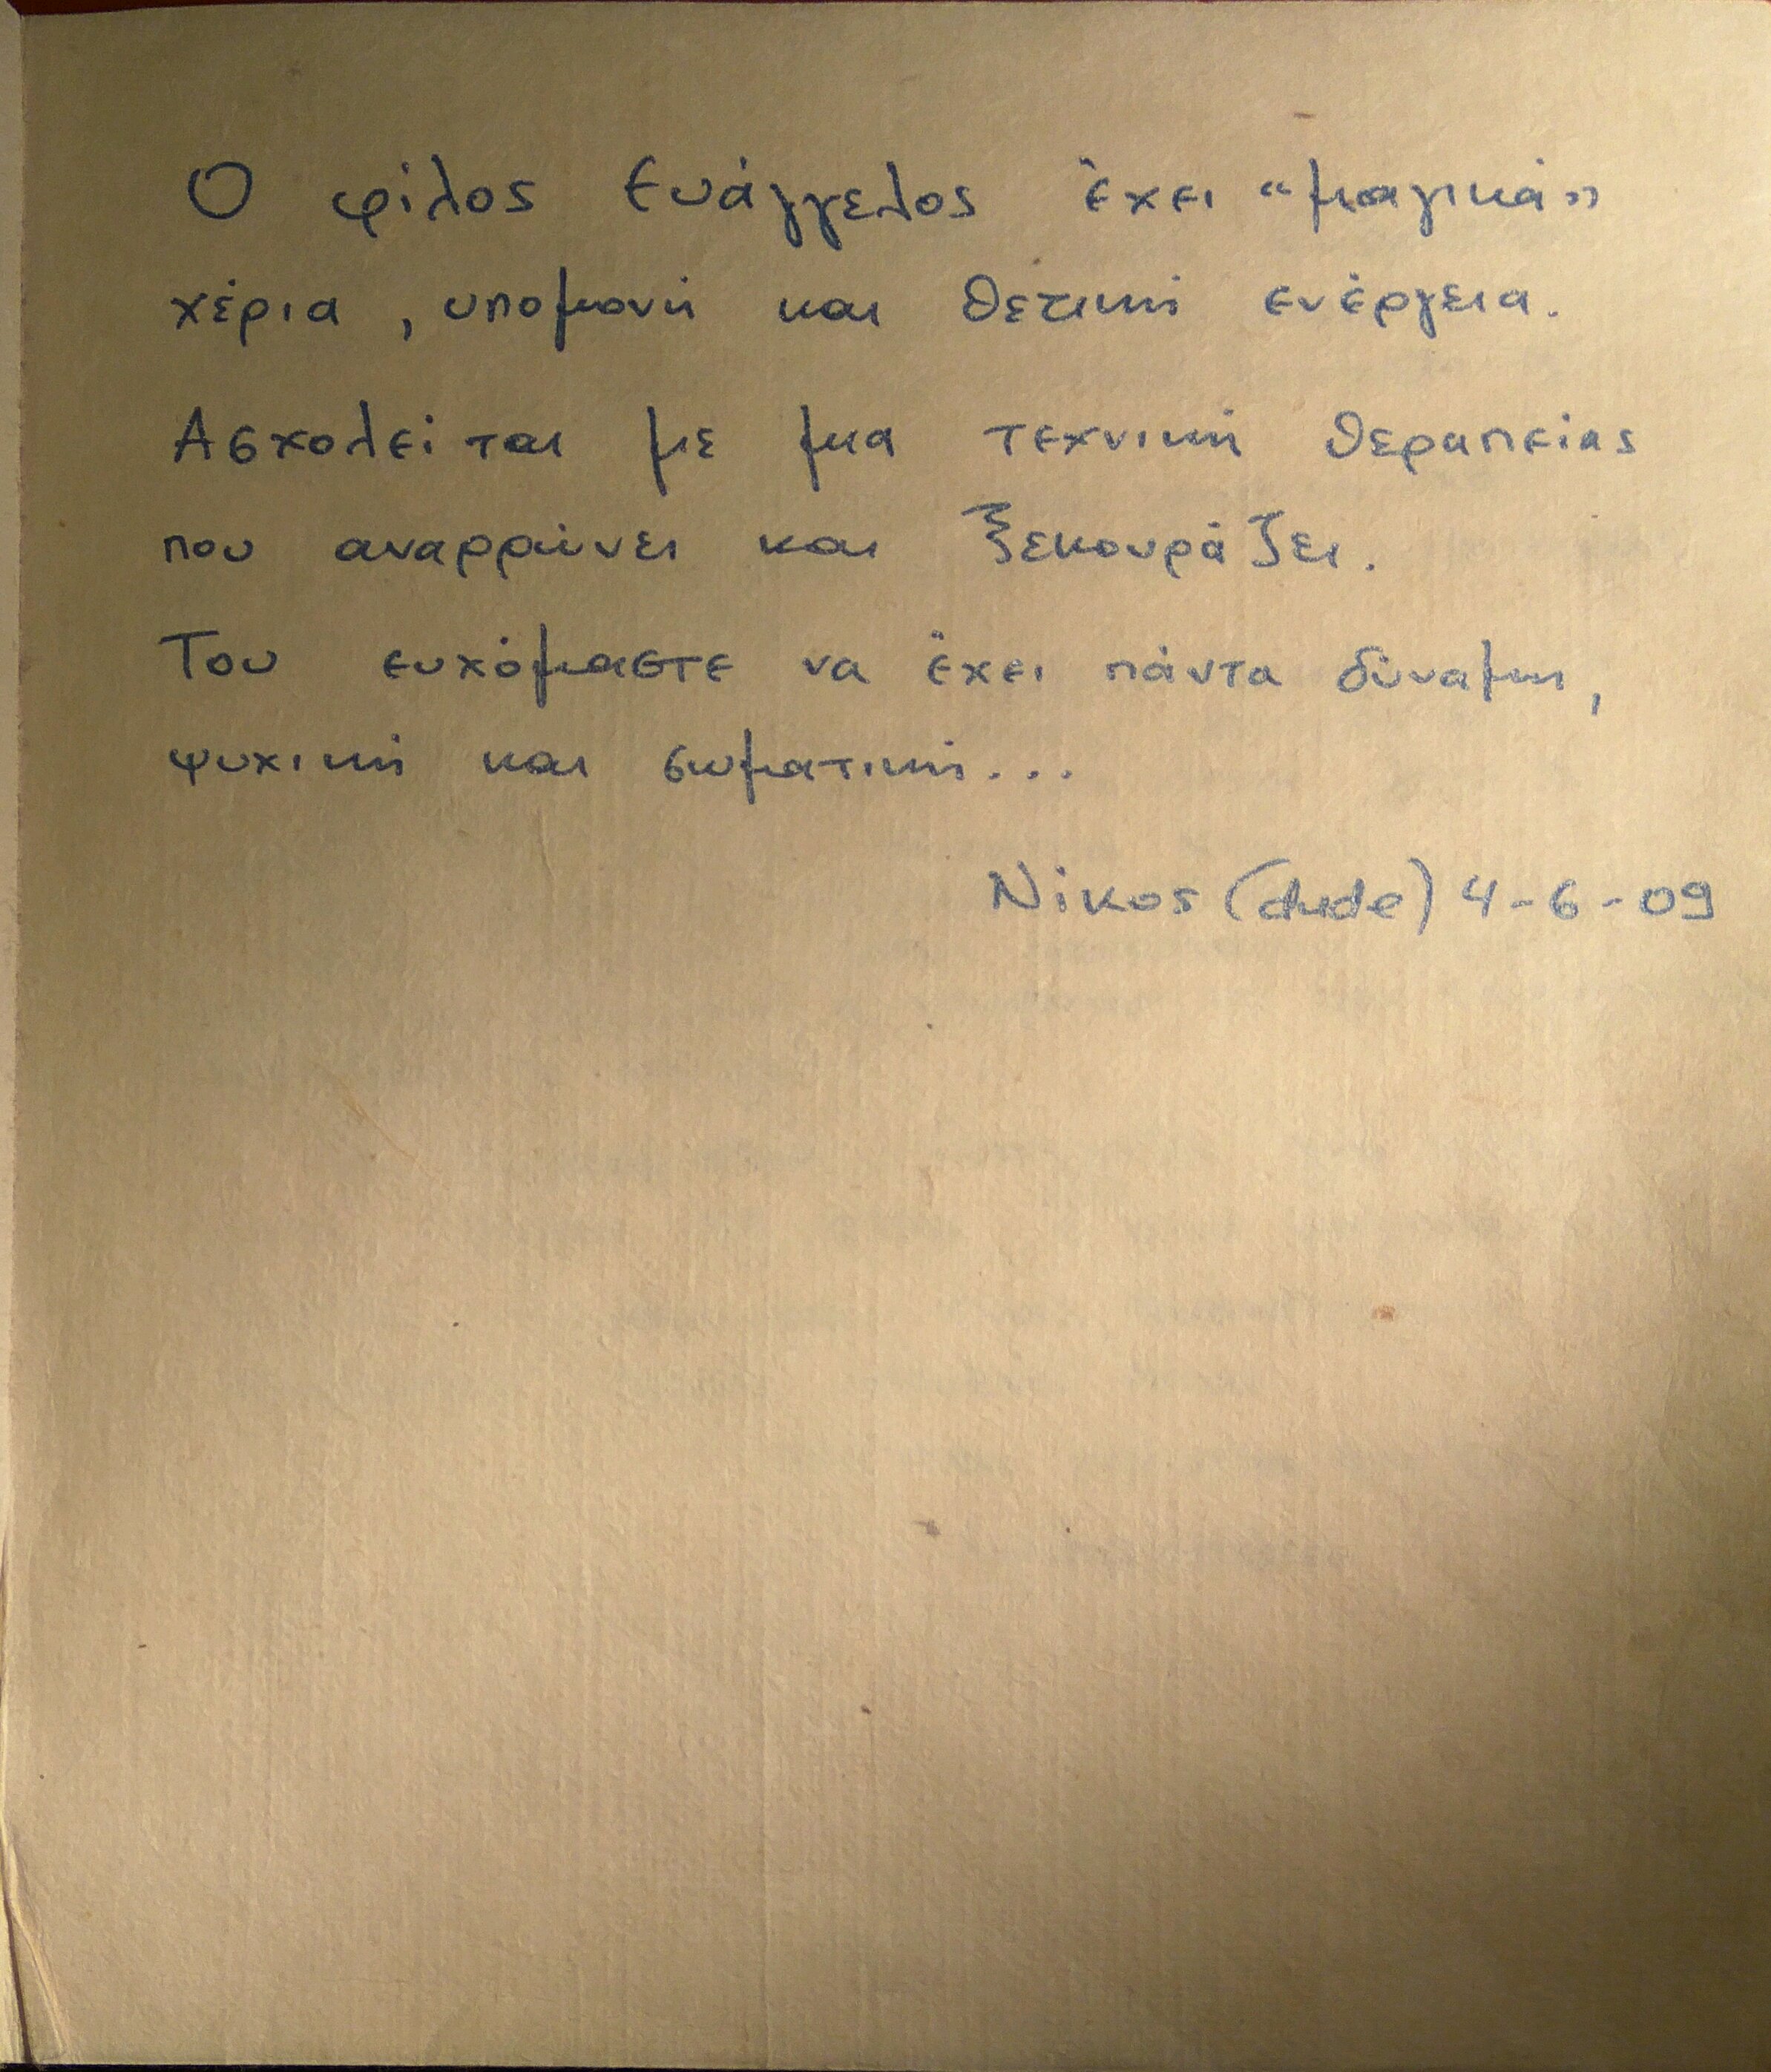 Ο φίλος Ευάγγελος έχει “μαγικά”
χέρια, υπομονή και θετική ενέργεια.
Ασχολείται με μια τεχνική θεραπείας
που αναρρώνει και ξεκουράζει.
Του ευχόμαστε να έχει πάντα δύναμη,
ψυχική και σωματική...
Νίκος (dede) 4-6-09